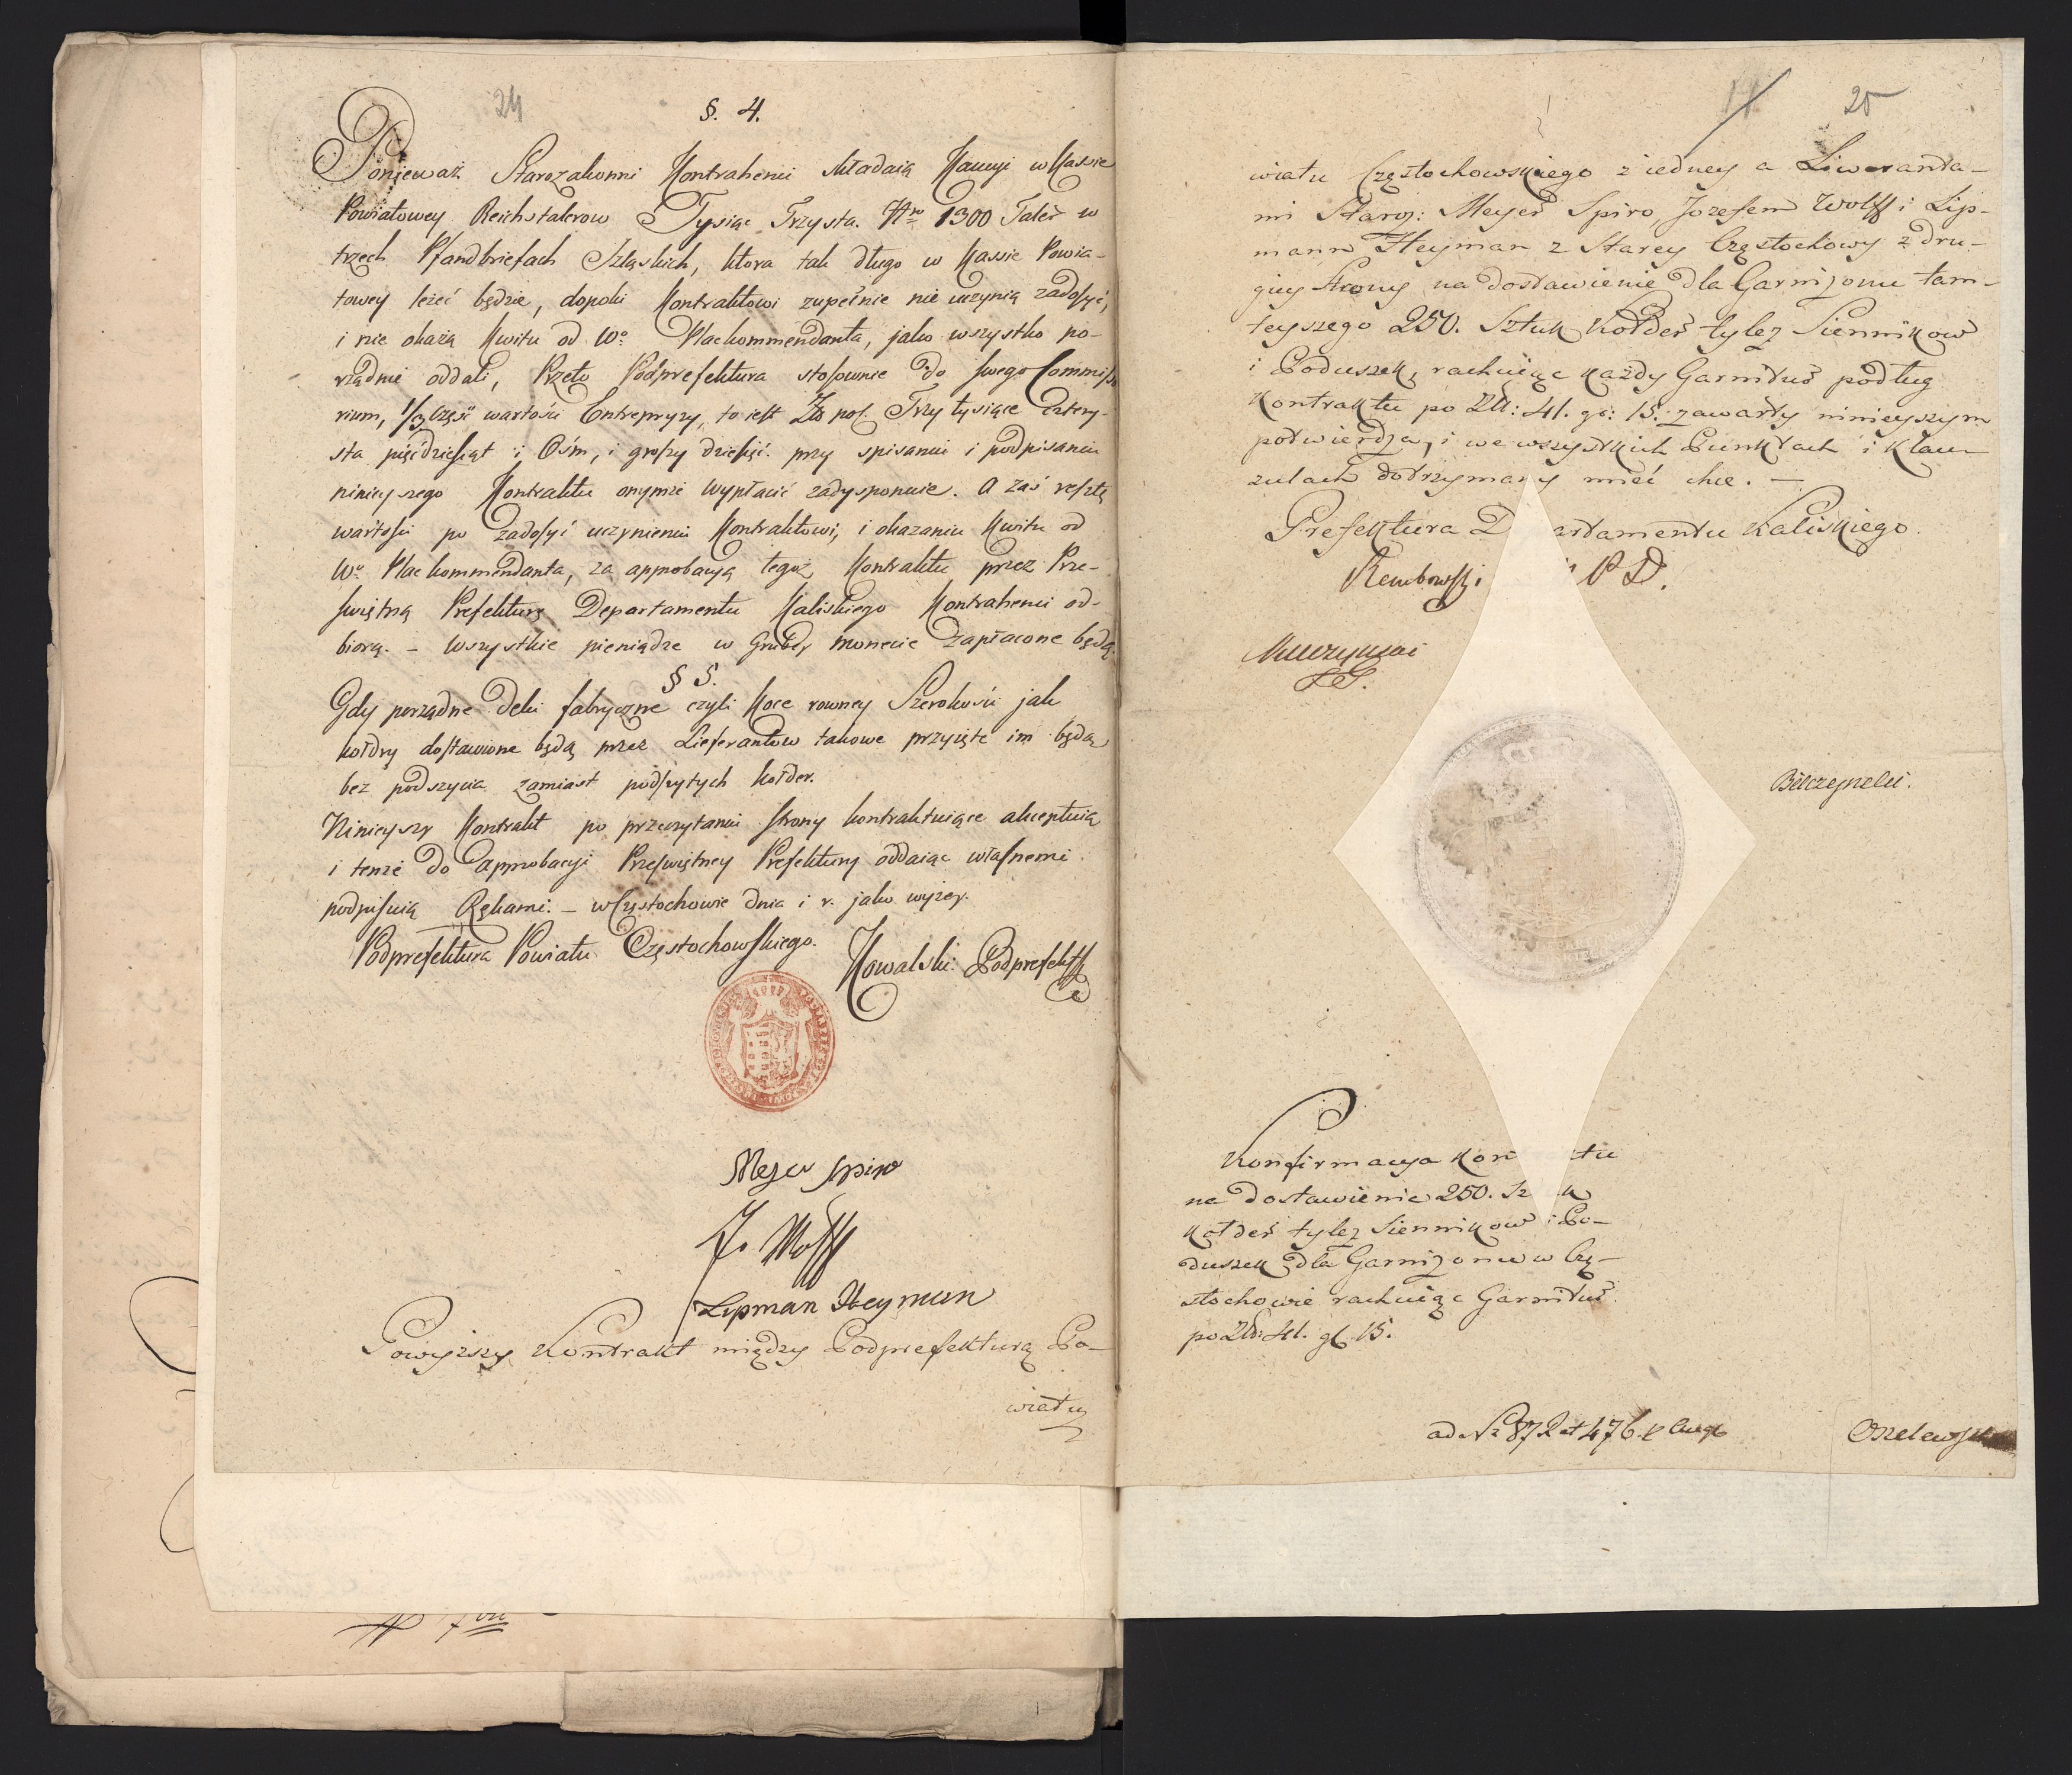 24
§. 4.
Ponieważ Starozakonni Kontrahenci składaią Kaucyi w Kassie
Powiatowey Reichstalerow Tysiąc Trzysta. Nro 1300 Taler w
trzech Pfandbriefach Szląskich, ktora tak długo w Kassie Powia-
towey leżeć będzie, dopoki Kontraktowi zupełnie nie uczynią zadosyć,
i nie okażą Kwitu od Wo Plackommendanta, jako wszystko po-
rządnie oddali, Przeto Podprefektura stosownie do swego Commisso
rium, 1/3 część wartości Entrepryzy, to iest Zło pol. Trzy tysiące cztery-
sta pięćdziesiąt i Ośm, i groszy dziesięć. przy spisaniu i podpisaniu
ninieyszego Kontraktu onymże wypłacić zadysponuie. A zaś resztę
wartości po zadosyć uczynieniu Kontraktowi, i okazaniu Kwitu od
Wo Plackommendanta, za approbacyą tegoż Kontraktu przez Prze-
świętną Prefekturę Departamentu Kaliskiego Kontrahenci od-
biorą. – Wszystkie pieniądze w Grubey monecie zapłacone będą.
§ 5.
Gdy porządne Deki fabryczne czyli Koce rowney Szerokości jak
kołdry dostawione będą przez Lieferantow takowe przyięte im będą
bez podszycia zamiast podszytych kołder.
Ninieyszy Kontrakt po przeczytaniu strony kontraktuiące akceptuią
i tenże do Approbacyi Przeświętney Prefektury oddaiąc własnemi
podpisuią Rękami. – w Częstochowie dnia i r. jako wyżey.
Podprefektura Powiatu Częstochowskiego.
Kowalski Podprefekt
Meyer Spiro
J. Wolff
Lipman Heyman
Powyższy Kontrakt między Podprefekturą Po-
wiatu
25
wiatu Częstochowskiego z iedney a Liweranta-
mi Staroz: Meyer Spiro, Jozefem Wolff i Lip-
mann Heyman z Starey Częstochowy z dru-
giey Strony na dostawienie dla Garnizonu tam-
teyszego 250. Sztuk Kołder tylez Siennikow
i Poduszek, rachuiąc każdy Garnitur podług
Kontraktu po Zł: 41. gr: 15. zawarty ninieyszym
potwierdza, i we wszystkich Punktach i Klau-
zulach dotrzymany mieć chce. –
Prefektura D artamentu Kaliskiego.
Rembowski P D.
Bilczynski.
Konfirmacya Kon tu
na dostawienie 250. Sz k
Kołder tylez Siennikow i Po-
duszek dla Garnizonu w Czę-
stochowie rachuiąc Garnitur
po Zł: 41. gl 15.
ad No 872 et 476.